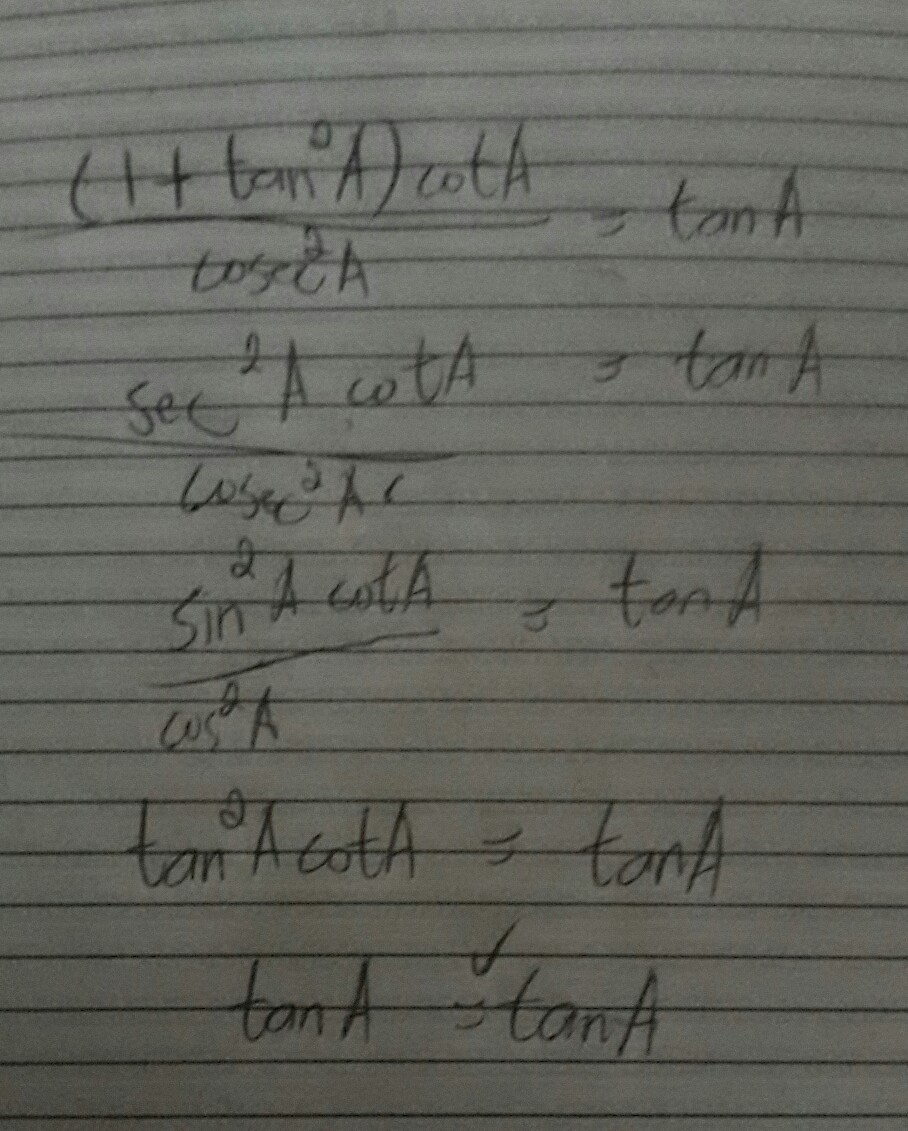 (1 + tan²A) cotA / cosec²A = tanA
sec²A cotA / cosec²A = tanA
sin²A cotA / cos²A = tanA
tan²A cotA = tanA
tanA = tanA ✓